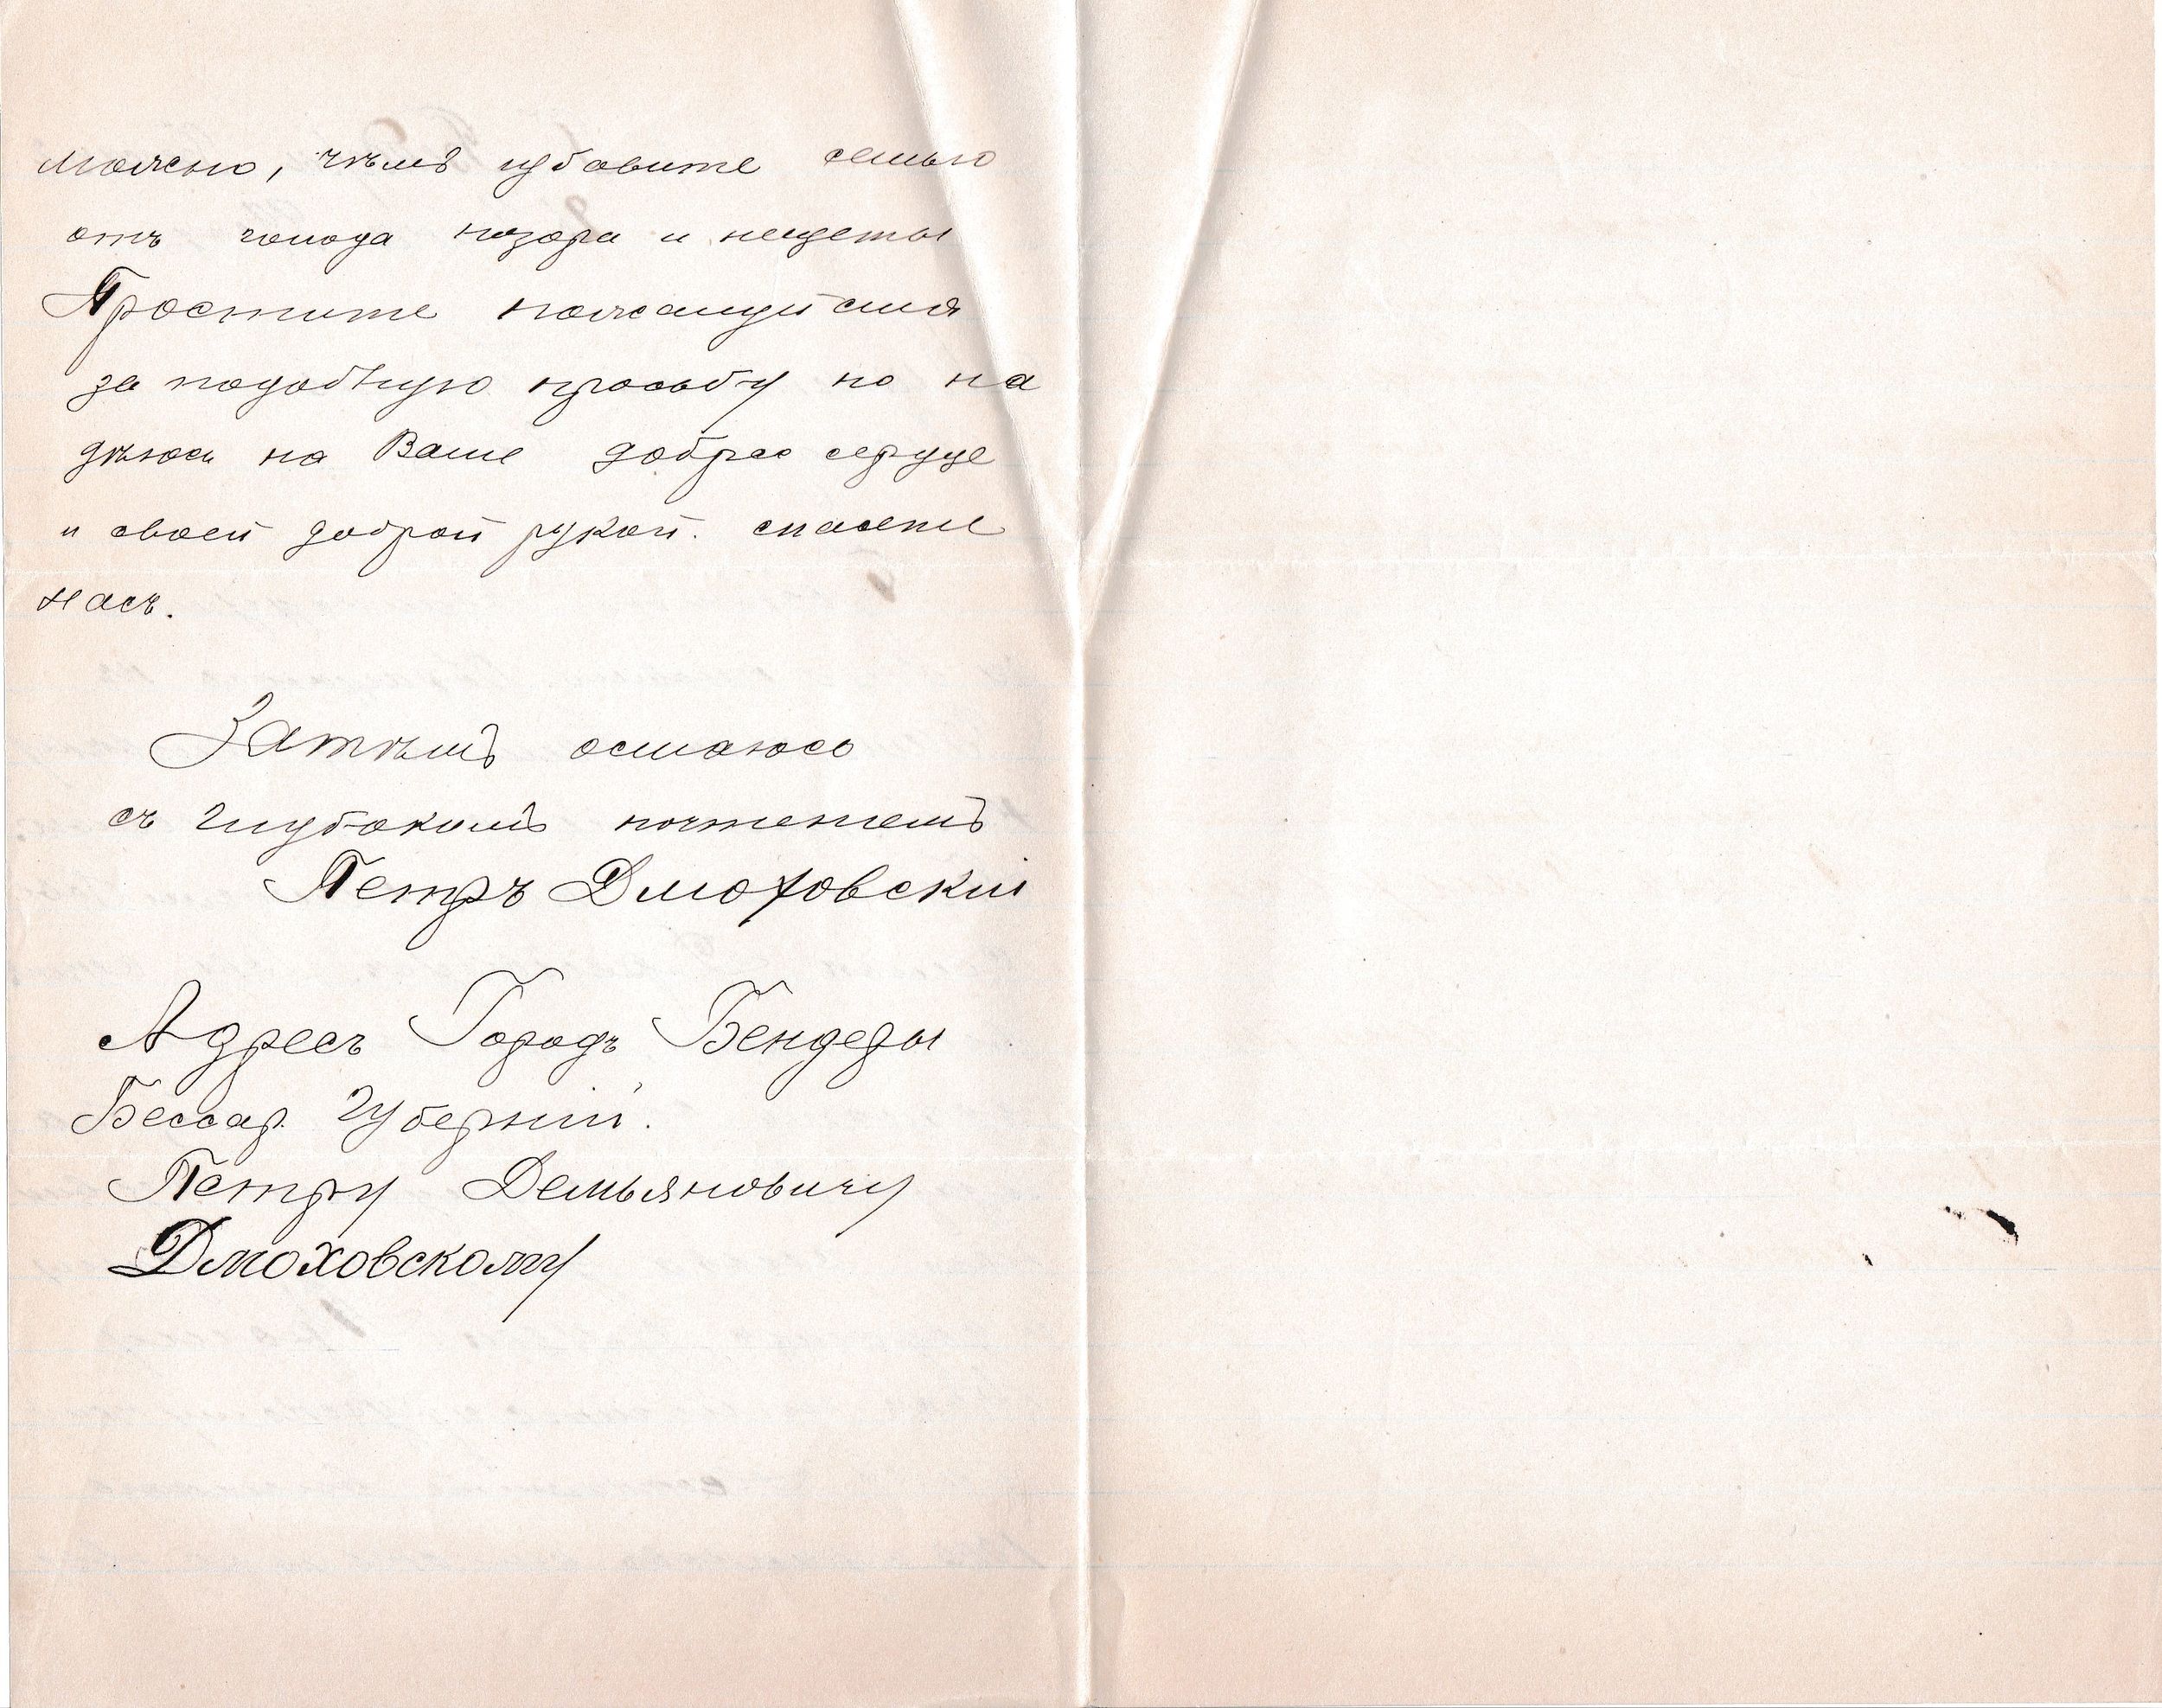 можно, чѣмъ избавите семью
отъ голода позора и нищеты
Простите пожалуйста
за подобную просьбу но на
дѣюсь на Ваше доброе сердце
и своей доброй рукой. спасете
насъ.
Затѣмъ остаюсь
съ глубокимъ почтеніемъ
Петръ Дмоховскій
Адресъ Городъ Бендеры
Бессар. Губерній.
Петру Демьяновичу
Дмоховскому